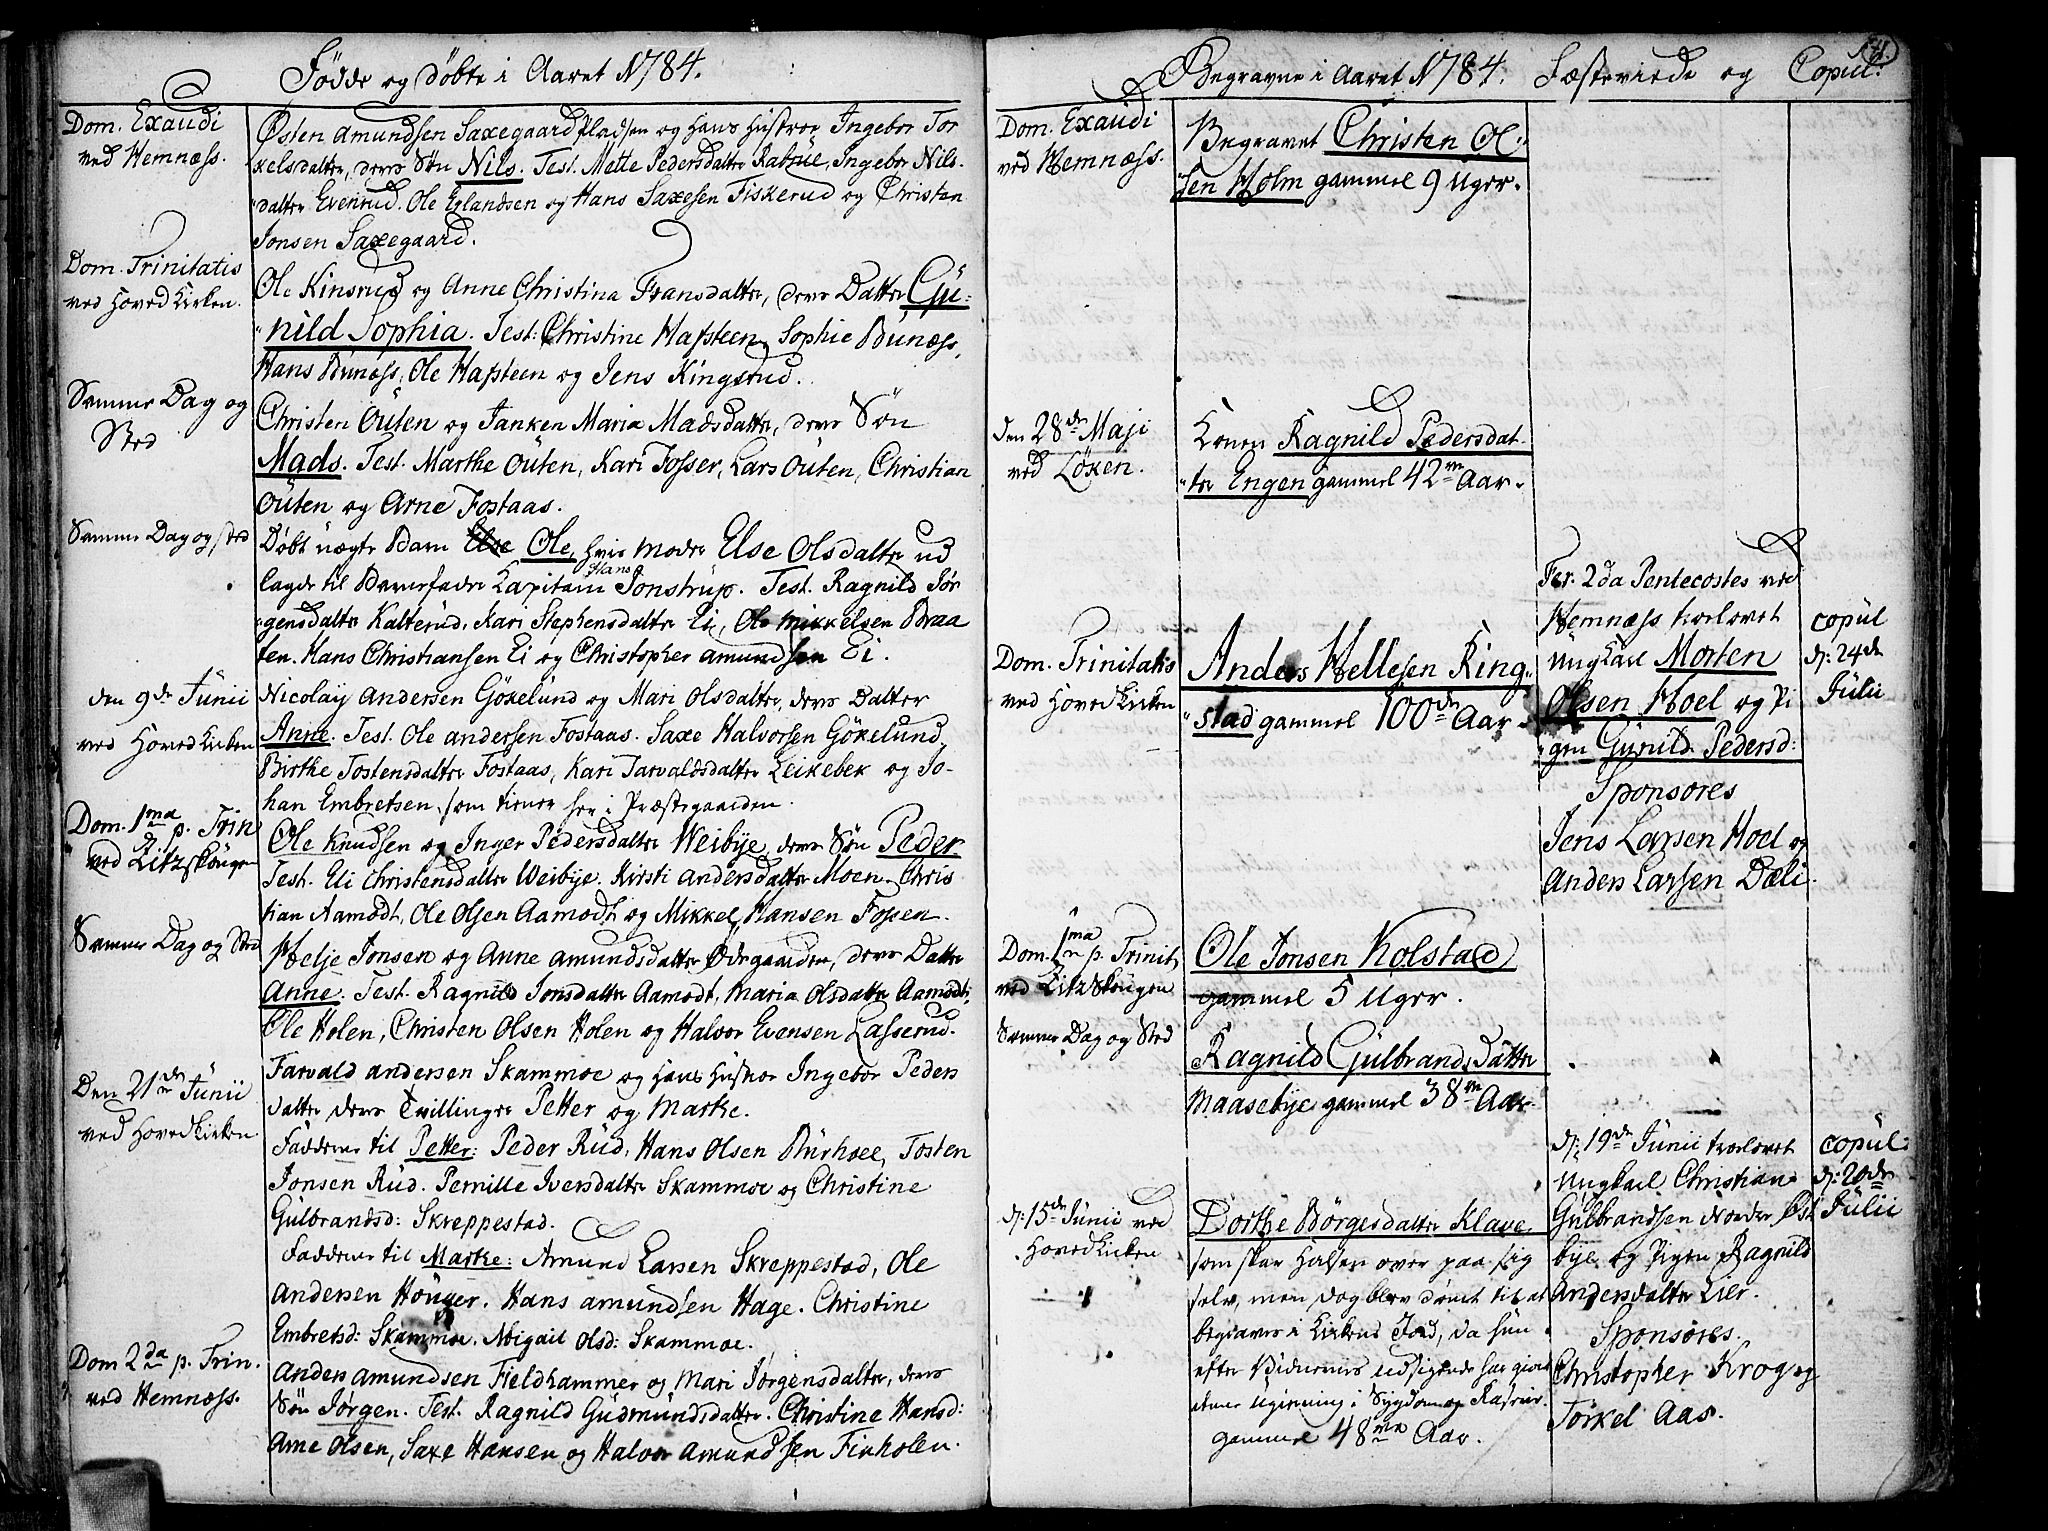 Fødde og døbte i Aaret 1784.
Dom. Exaudi
ved Hemnæss.
Østen Amundsen Saxegaardpladsen og hans Hustroe Ingebor Tor
kelsdatter, deres Søn Nils. Test. Mette Pedersdatter, Ingebor Nils-
datter Evenrud. Ole Erlandsen og Hans Saxesen Fiskerud og Christen
Jonsen Saxegaard.
Dom. Trinitatis
ved Hoved Kirken.
Ole Kinsrud og Anne Christina Fransdatter, deres Datter Gu-
nild Sophia. Test: Christine Hafsteen, Sophie Bunæss,
Hans Bunæss, Ole Hafsteen og Jens Kingsrud.
Samme Dag og
Sted
Christen Outen og Janken Maria Madsdatter, deres Søn
Mads. Test. Marthe Outen, Kari Tosser, Lars Outen, Christian
Outen og Arne Fostaas.
Samme Dag og sted
Døbt uægte Barn Else Ole, hvis Moder Else Olsdatter ud
lagde til Barnefader Kapitain Hans Jonstrup. Test. Ragnild Jør
gensdatter Kalterud, Kari Stephensdatter Ei, Ole Mikkelsen Braa
ten. Hans Christiansen Ei og Christopher Amundsen Ei.
den 9de Junii
ved Hoved Kirken
Nicolaÿ Andersen Gökelund og Mari Olsdatter, deres Datter
Anne. Test. Ole Andersen Fostaas. Saxe Halvorsen Gökelund,
Birthe Tostensdatter Fostaas, Kari Tarvaldsdatter Leikebek og Jo-
han Embretsen, som tiener her i Præstegaarden.
Dom. 1ma p. Trin
ved Sitzskougen
Ole Knudsen og Inger Pedersdatter Weibye, deres Søn Peder
Test. Eli Christensdatter Weibye. Kirsti Andersdatter Moen. Chris
tian Aamodt, Ole Olsen Aamodt og Mikkel Hansen Fossen.
Samme Dag og Sted
Helje Jonsen og Anne Amundsdatter Ødegaarden, deres Datter
Anne. Test. Ragnild Jonsdatter Aamodt, Maria Olsdatter Aamodt,
Ole Holen, Christen Olsen Holen og Halvor Evensen Lasserud.
Den 21de Junii
ved Hoved Kirken.
Tarvald Andersen Skammoe og hans Hustroe Ingebor Peders
datter deres Tvillinger Petter og Marthe.
Faddere til Petter: Peder Rud, Hans Olsen Burhoel, Tosten
Jonsen Rud. Pernille Iversdatter Skammoe og Christine
Gulbrandsd: Skreppestad.
Faddere til Marthe: Amund Larsen Skreppestad, Ole
Andersen Höuger. Hans Amundsen Hage. Christine
Embretsd: Skammoe. Abigail Olsd: Skammoe.
Dom 2da p. Trin.
ved Hemnæss.
Anders Amundsen Fieldhammer og Mari Jørgensdatter, deres
Søn Jørgen. Test. Ragnild Gudmundsdatter. Christine Hansd:
Arne Olsen, Saxe Hansen og Halvor Amundsen Finholen.
Begravne i Aaret 1784. Fæsteviede og Copul:
Dom. Exaudi
ved Hemnæss.
Begravet Christen Ol-
sen Holm gammel 9 Uger.
den 28de Maji
ved Löken.
Konen Ragnild Pedersdat-
ter Engen gammel 42 Aar.
Dom. Trinitatis
ved Hoved Kirken
Anders Hellesen Ring-
stad gammel 100de Aar.
Dom. 1ma p. Trinit.
ved Sitzskougen
Ole Jonsen Kolstad
gammel 5 Uger.
Samme Dag og Sted
Ragnild Gulbrands Datter
Maasebye gammel 38 Aar
d: 15de Junii ved
Hoved Kirken
Dorthe Börgesdatter Klave
som skar Halsen over paa sig
selv, men dog blev dömt til at
begraves i Kirkens Jord, da hun
efter Vidnernes udsigende har giort
denne Gierning i Sygdom og Raserie.
gammel 48 Aar.
Fer. 2da Pentecostes ved
Hemnæss trolovet
Ung Karl Morten
Olsen Hoel og Pi
gen Gunild Pedersd:
Sponsores
Jens Larsen Hoel og
Anders Larsen Dæli.
copul
d: 24de
Julii
d: 19de Junii trolovet
Ungkarl Christian
Gulbrandsen Nordre Øst
bye og Pigen Ragnild
Andersdatter Lier.
Sponsores.
Christopher Krog og
Törkel Aas.
copul:
d: 20de
Julii